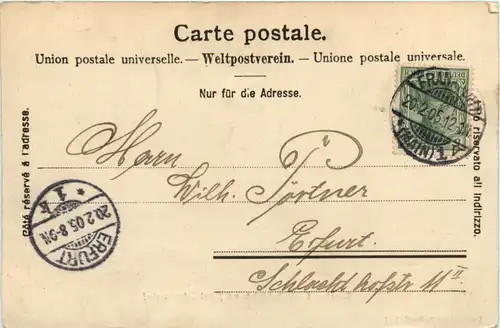 Carte postale.
Union postale universelle. — Weltpostverein. — Unione postale universale.
Nur für die Adresse.
Côté réservé à l'adresse.
Lato riservato all' indirizzo.
20.2.05.12
(MAIN) 1
Herrn
Wilh. Pörtner
Erfurt.
Schlachthofstr 11 II
* 1 k
20.2.05.8-9N.
ERFURT